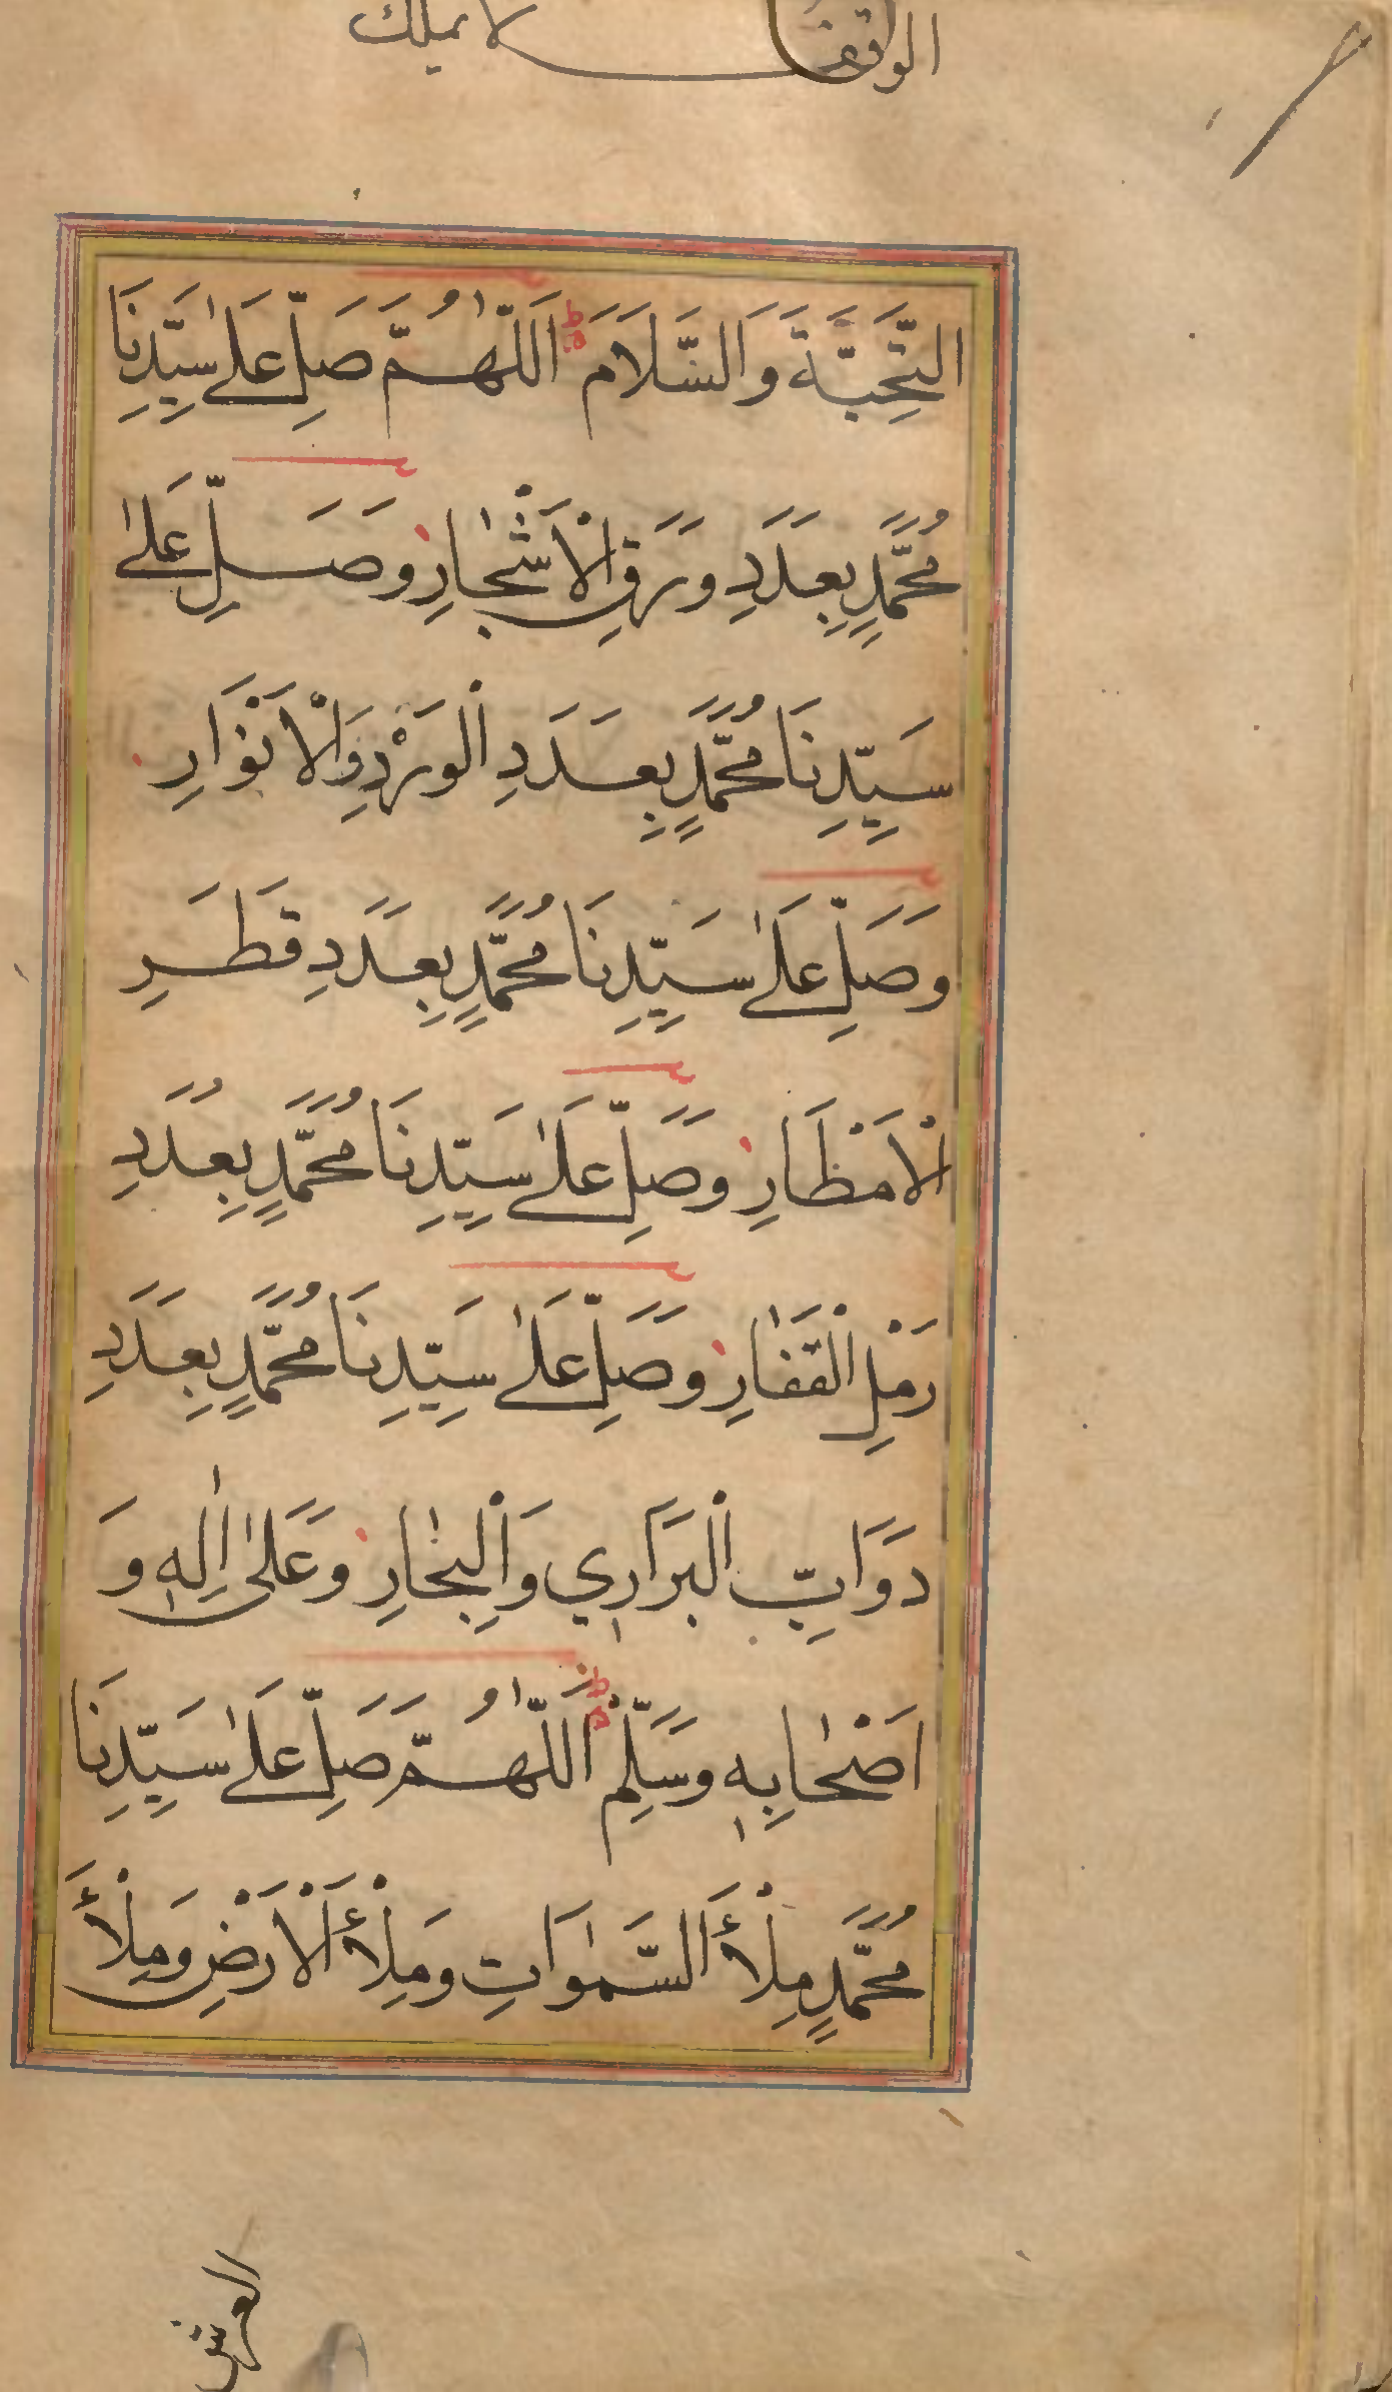 الوقف لا يملك
التَّحِيَّةَ وَالسَّلَامَ اَللّٰهُمَّ صَلِّ عَلٰى سَيِّدِنَا
مُحَمَّدٍ بِعَدَدِ وَرَقِ الْاَشْجٰارِ وَصَلِّ عَلٰى
سَيِّدِنَا مُحَمَّدٍ بِعَدَدِ الْوَرْدِ وَالْاَنْوَارِ
وَصَلِّ عَلٰى سَيِّدِنَا مُحَمَّدٍ بِعَدَدِ قَطَرِ
الْاَمْطَارِ وَصَلِّ عَلٰى سَيِّدِنَا مُحَمَّدٍ بِعَدَدِ
رَمْلِ الْقَفٰارِ وَصَلِّ عَلٰى سَيِّدِنَا مُحَمَّدٍ بِعَدَدِ
دَوَابِّ الْبَرَارِي وَالْبِحٰارِ وَعَلٰى اٰلِهٖ وَ
اَصْحٰابِهٖ وَسَلِّمْ اَللّٰهُمَّ صَلِّ عَلٰى سَيِّدِنَا
مُحَمَّدٍ مِلْأَ السَّمٰوَاتِ وَمِلْأَ الْاَرْضِ وَمِلْأَ
العرش